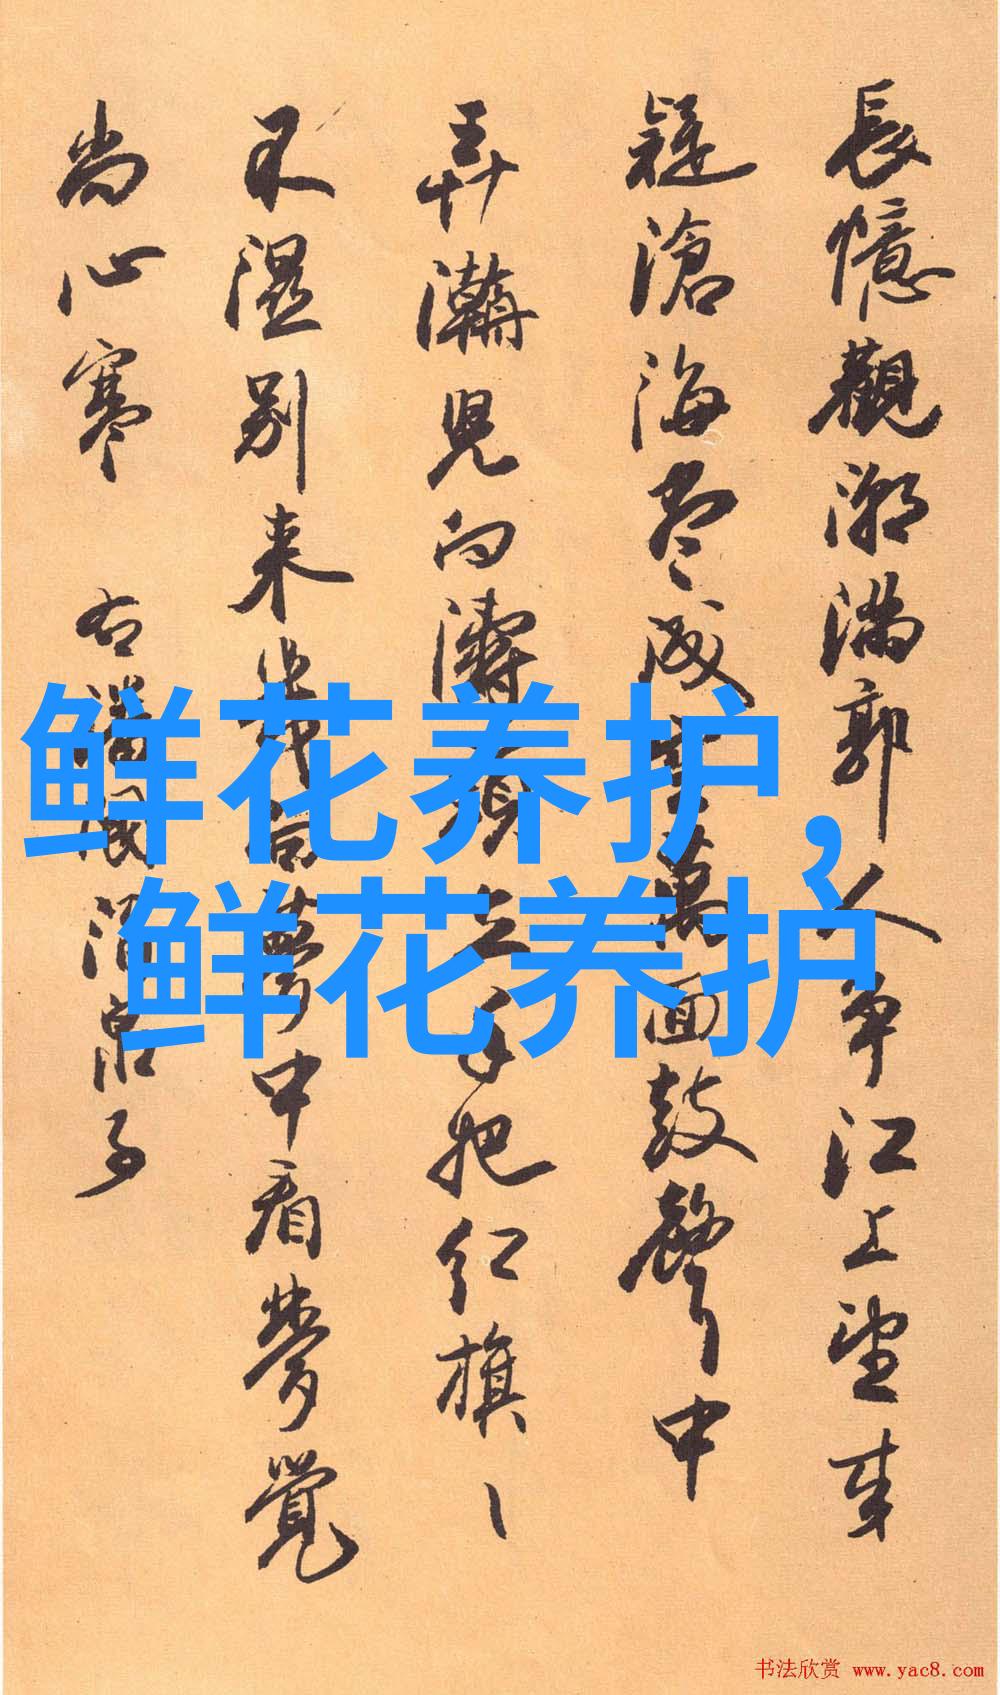 長憶觀潮滿郭人争江上望来
疑滄海盡成空萬面鼓聲中
弄濤兒向濤頭立手把紅旗〻
不濕別来幾向夢中看夢覺
尚心寒 右潘閬酒泉子
鲜花养护，
鲜花养护
书法欣赏 www.yac8.com